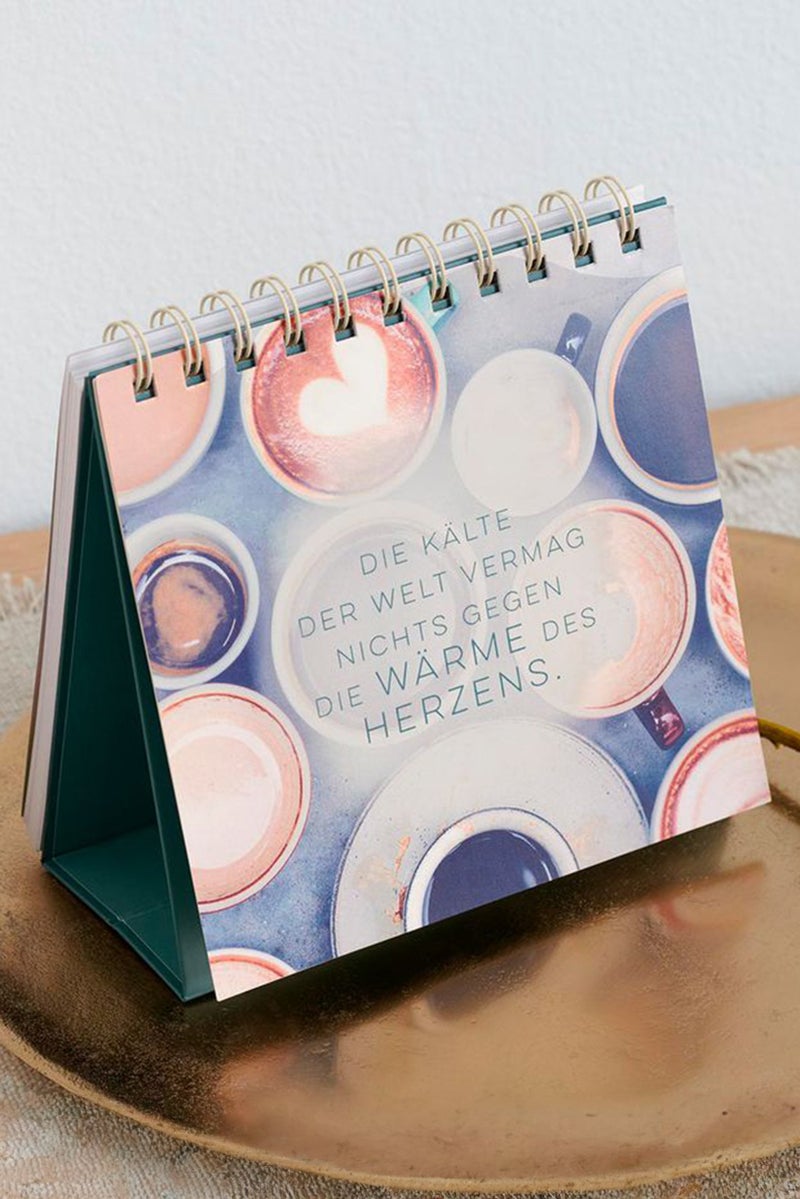 DIE KÄLTE
DER WELT VERMAG
NICHTS GEGEN
DIE WÄRME DES
HERZENS.